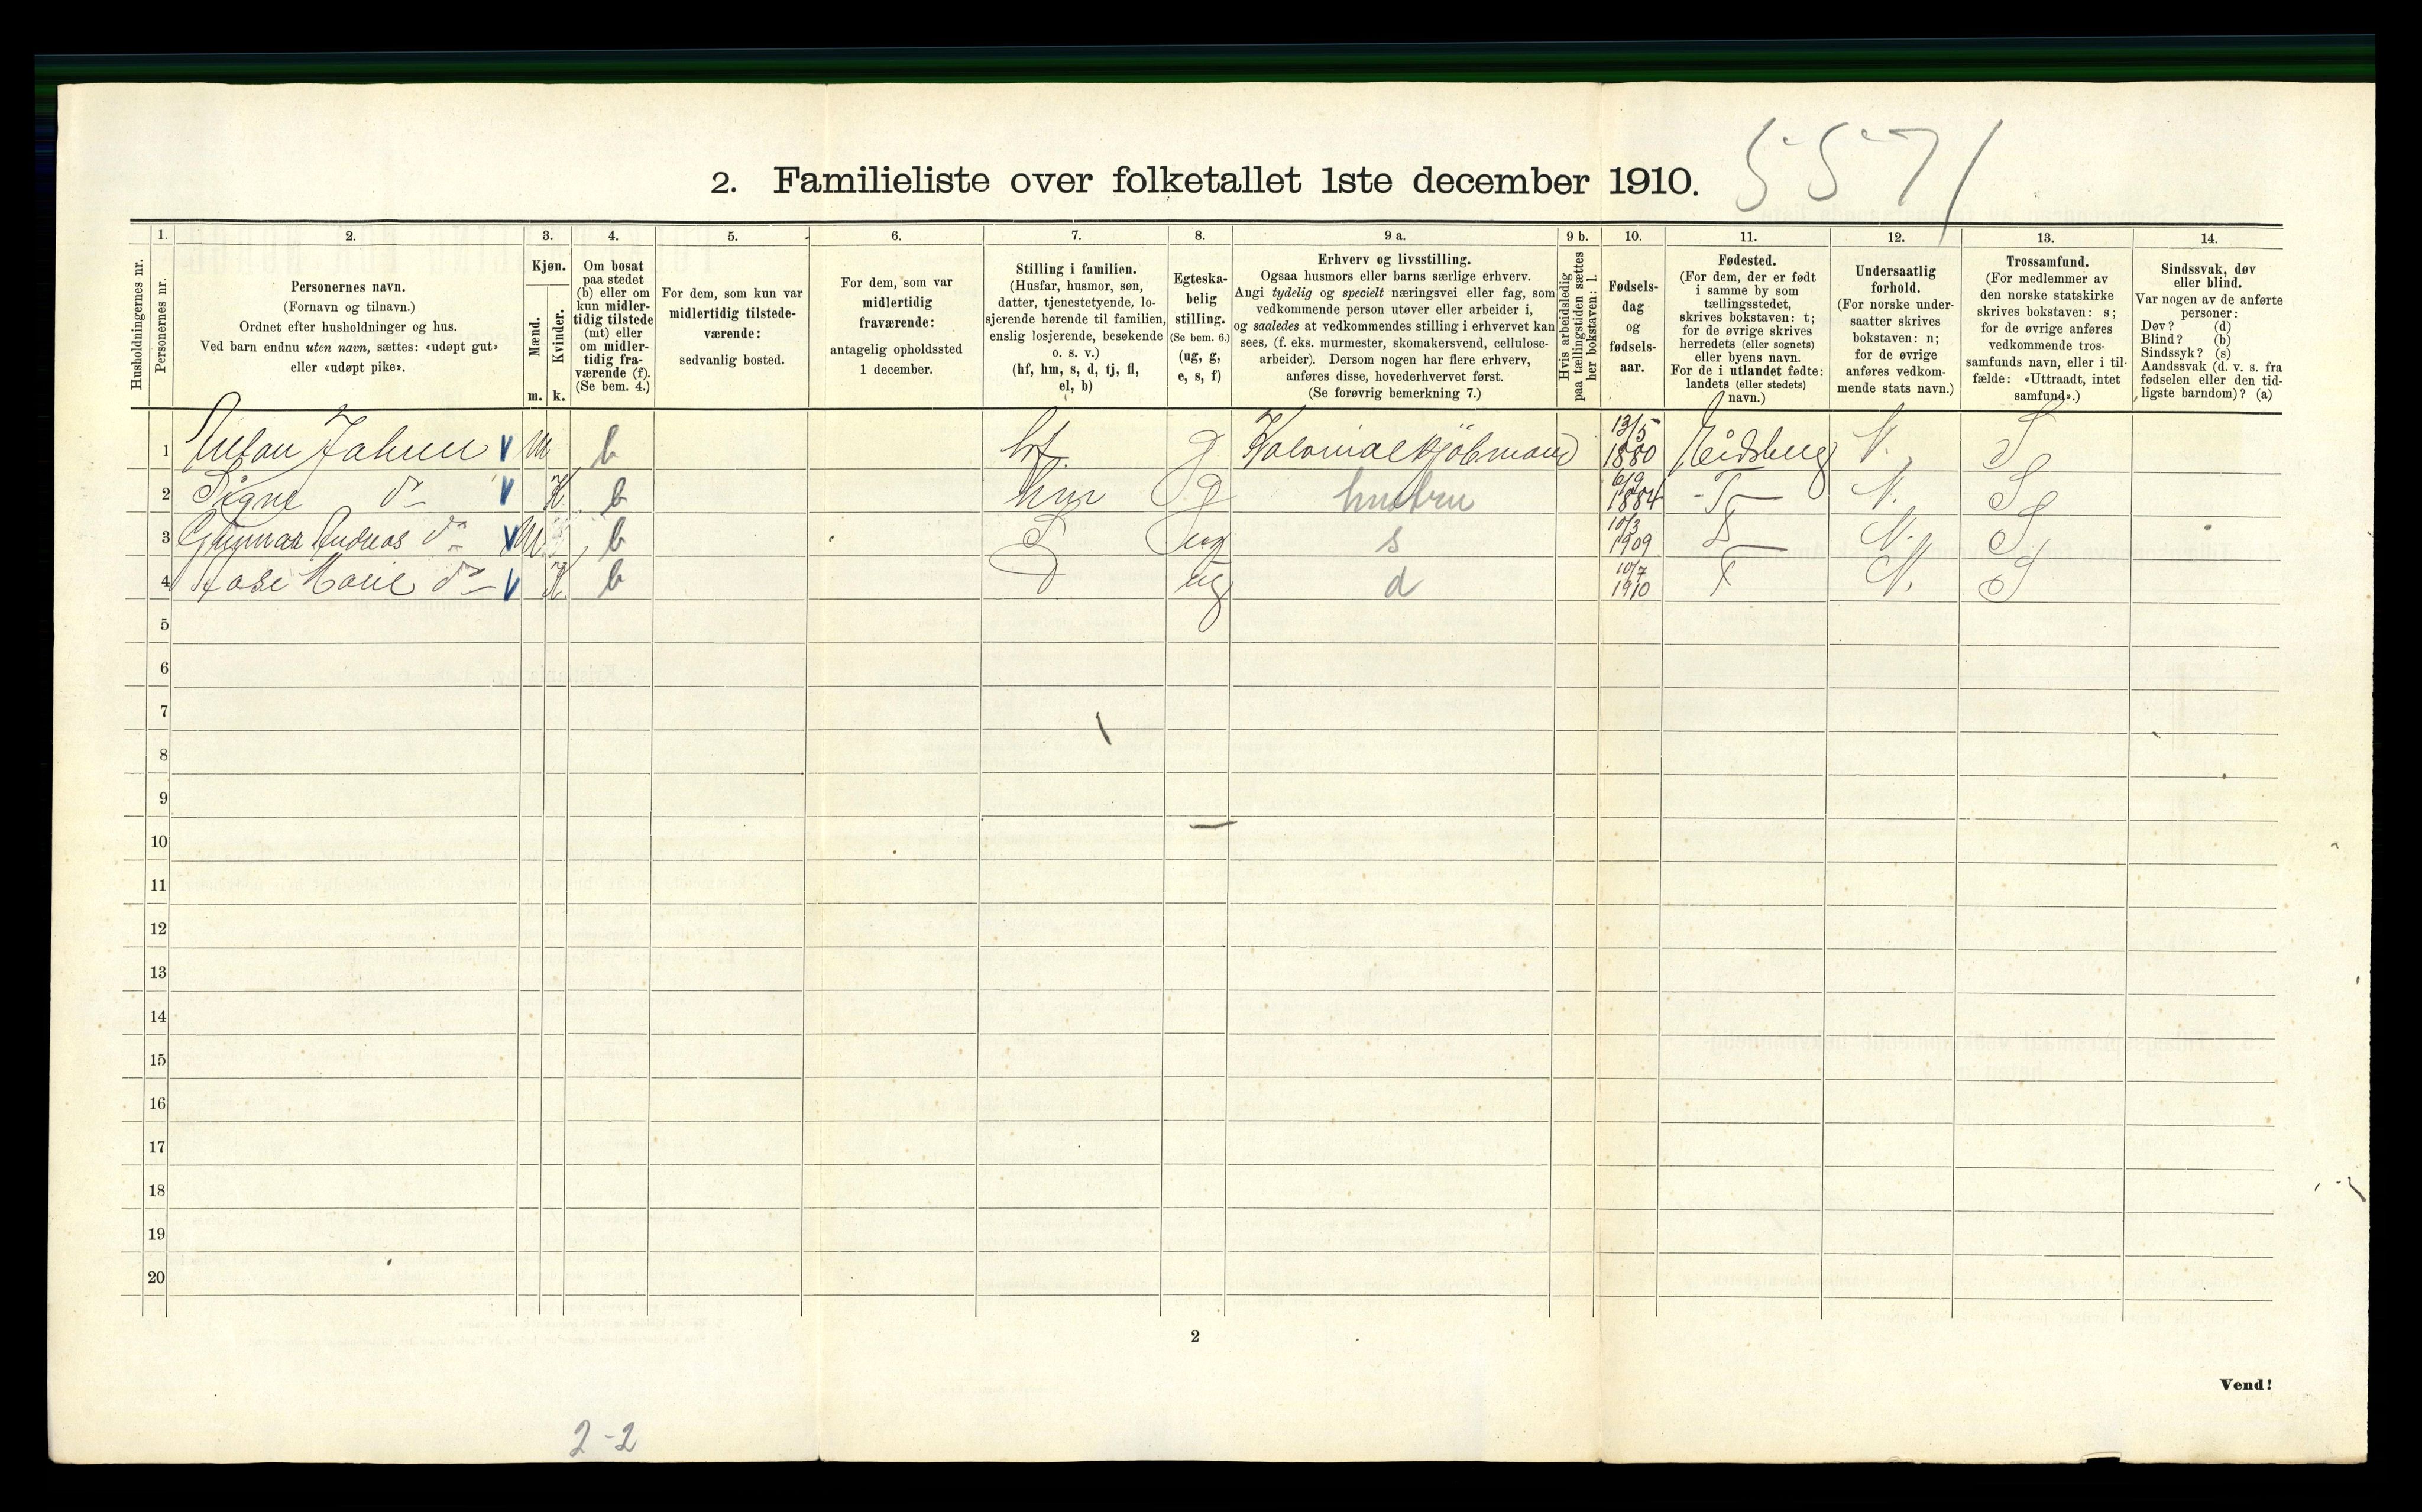 5571
2. Familieliste over folketallet 1ste december 1910.
Husholdningernes nr.
1. Personernes nr.
2. Personernes navn.
(Fornavn og tilnavn.)
Ordnet efter husholdninger og hus.
Ved barn endnu uten navn, sættes: «udøpt gut»
eller «udøpt pike».
3. Kjøn.
Mænd. m.
Kvinder. k.
4. Om bosat
paa stedet
(b) eller om
kun midler-
tidig tilstede
(mt) eller
om midler-
tidig fra-
værende (f).
(Se bem. 4.)
5. For dem, som kun var
midlertidig tilstede-
værende:
sedvanlig bosted.
6. For dem, som var
midlertidig
fraværende:
antagelig opholdssted
1 december.
7. Stilling i familien.
(Husfar, husmor, søn,
datter, tjenestetyende, lo-
sjerende hørende til familien,
enslig losjerende, besøkende
o. s. v.)
(hf, hm, s, d, tj, fl,
el, b)
8. Egteska-
belig
stilling.
(Se bem. 6.)
(ug, g,
e, s, f)
9 a. Erhverv og livsstilling.
Ogsaa husmors eller barns særlige erhverv.
Angi tydelig og specielt næringsvei eller fag, som
vedkommende person utøver eller arbeider i,
og saaledes at vedkommendes stilling i erhvervet kan
sees, (f. eks. murmester, skomakersvend, cellulose-
arbeider). Dersom nogen har flere erhverv,
anføres disse, hovederhvervet først.
(Se forøvrig bemerkning 7.)
9 b. Hvis arbeidsledig
paa tællingstiden sættes
her bokstaven: l.
10. Fødsels-
dag
og
fødsels-
aar.
11. Fødested.
(For dem, der er født
i samme by som
tællingsstedet,
skrives bokstaven: t;
for de øvrige skrives
herredets (eller sognets)
eller byens navn.
For de i utlandet fødte:
landets (eller stedets)
navn.)
12. Undersaatlig
forhold.
(For norske under-
saatter skrives
bokstaven: n;
for de øvrige
anføres vedkom-
mende stats navn.)
13. Trossamfund.
(For medlemmer av
den norske statskirke
skrives bokstaven: s;
for de øvrige anføres
vedkommende tros-
samfunds navn, eller i til-
fælde: «Uttraadt, intet
samfund».)
14. Sindssvak, døv
eller blind.
Var nogen av de anførte
personer:
Døv? (d)
Blind? (b)
Sindssyk? (s)
Aandssvak (d. v. s. fra
fødselen eller den tid-
ligste barndom)? (a)
1 Jahren V M b hf. g Kolonialkjøbmand 13/5 1880 Eidsberg N. S
2 Signe do V K b hm g hustru 6/9 1884 T N. S
3 Gunnar Andreas do V M b S ug s 10/3 1909 T N. S
4 Aase Marie do V K b D ug d 10/7 1910 T N. S
5
6
7
8
9
10
11
12
13
14
15
16
17
18
19
20
2
Vend!
2-2